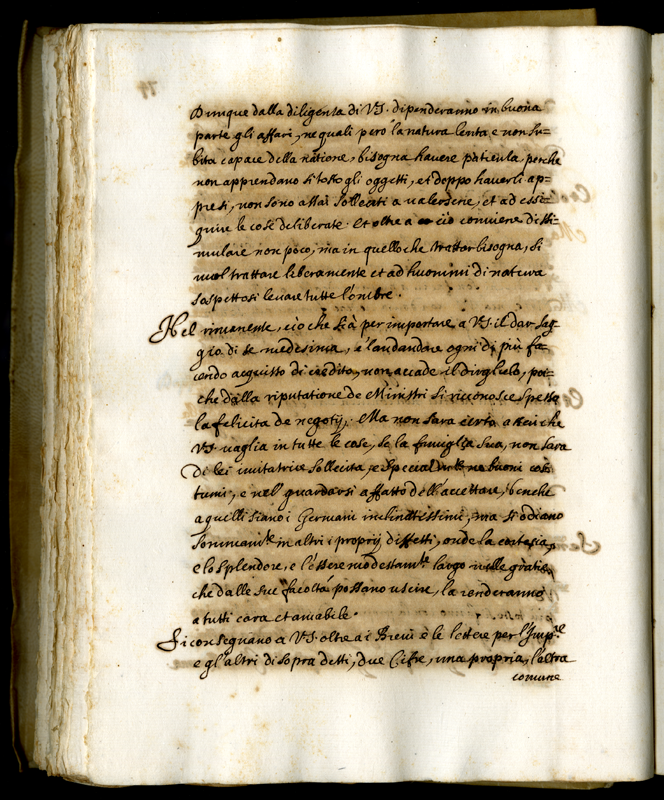 Dunque dalla diligenza di VS. dipenderanno in buona
parte gli affari, ne quali però la natura lenta, e non su-
bita capace della natione, bisogna havere patienza, perche
non apprendano si tosto gli oggetti, et doppo haverli ap-
presi, non sono assai solleciti a valersene, et ad esse-
guire le cose deliberate. Et oltre a ciò conviene dissi-
mulare non poco, ma in quello che trattar bisogna, si
vuol trattare liberamente et ad huomini di natura
sospettosi levare tutte l'ombre.
Nel rimanente, ciò che sia per importare a VS. il dar sag-
gio di se medesima, e l'andandare ogni dì più fa-
cendo acquisto di credito, non accade il dirglielo, poi-
che dalla riputatione de Ministri si riconosce spesso
la felicita de negotij. Ma non sara certo atten che
VS. vaglia in tutte le cose, se la famiglia sua, non sara
di lei imitatrice sollecita, e specialmte ne buoni cos-
tumi, e nel guardarsi affatto dell'accettare, benche
a quelli siano i Germani inclinatissimi, ma si odiano
sommamte in altri i proprij diffetti, onde la cortesia,
e lo splendore, e l'essere modestamte largo nelle gratie,
che dalle sue facoltà possano uscire, la renderanno
a tutti cara et amabile.
Si consegnano a VS. oltre ai Brevi e le lettere per l'Impre
e gl'altri di sopra detti, due Cifre, una propria, l'altra
comune